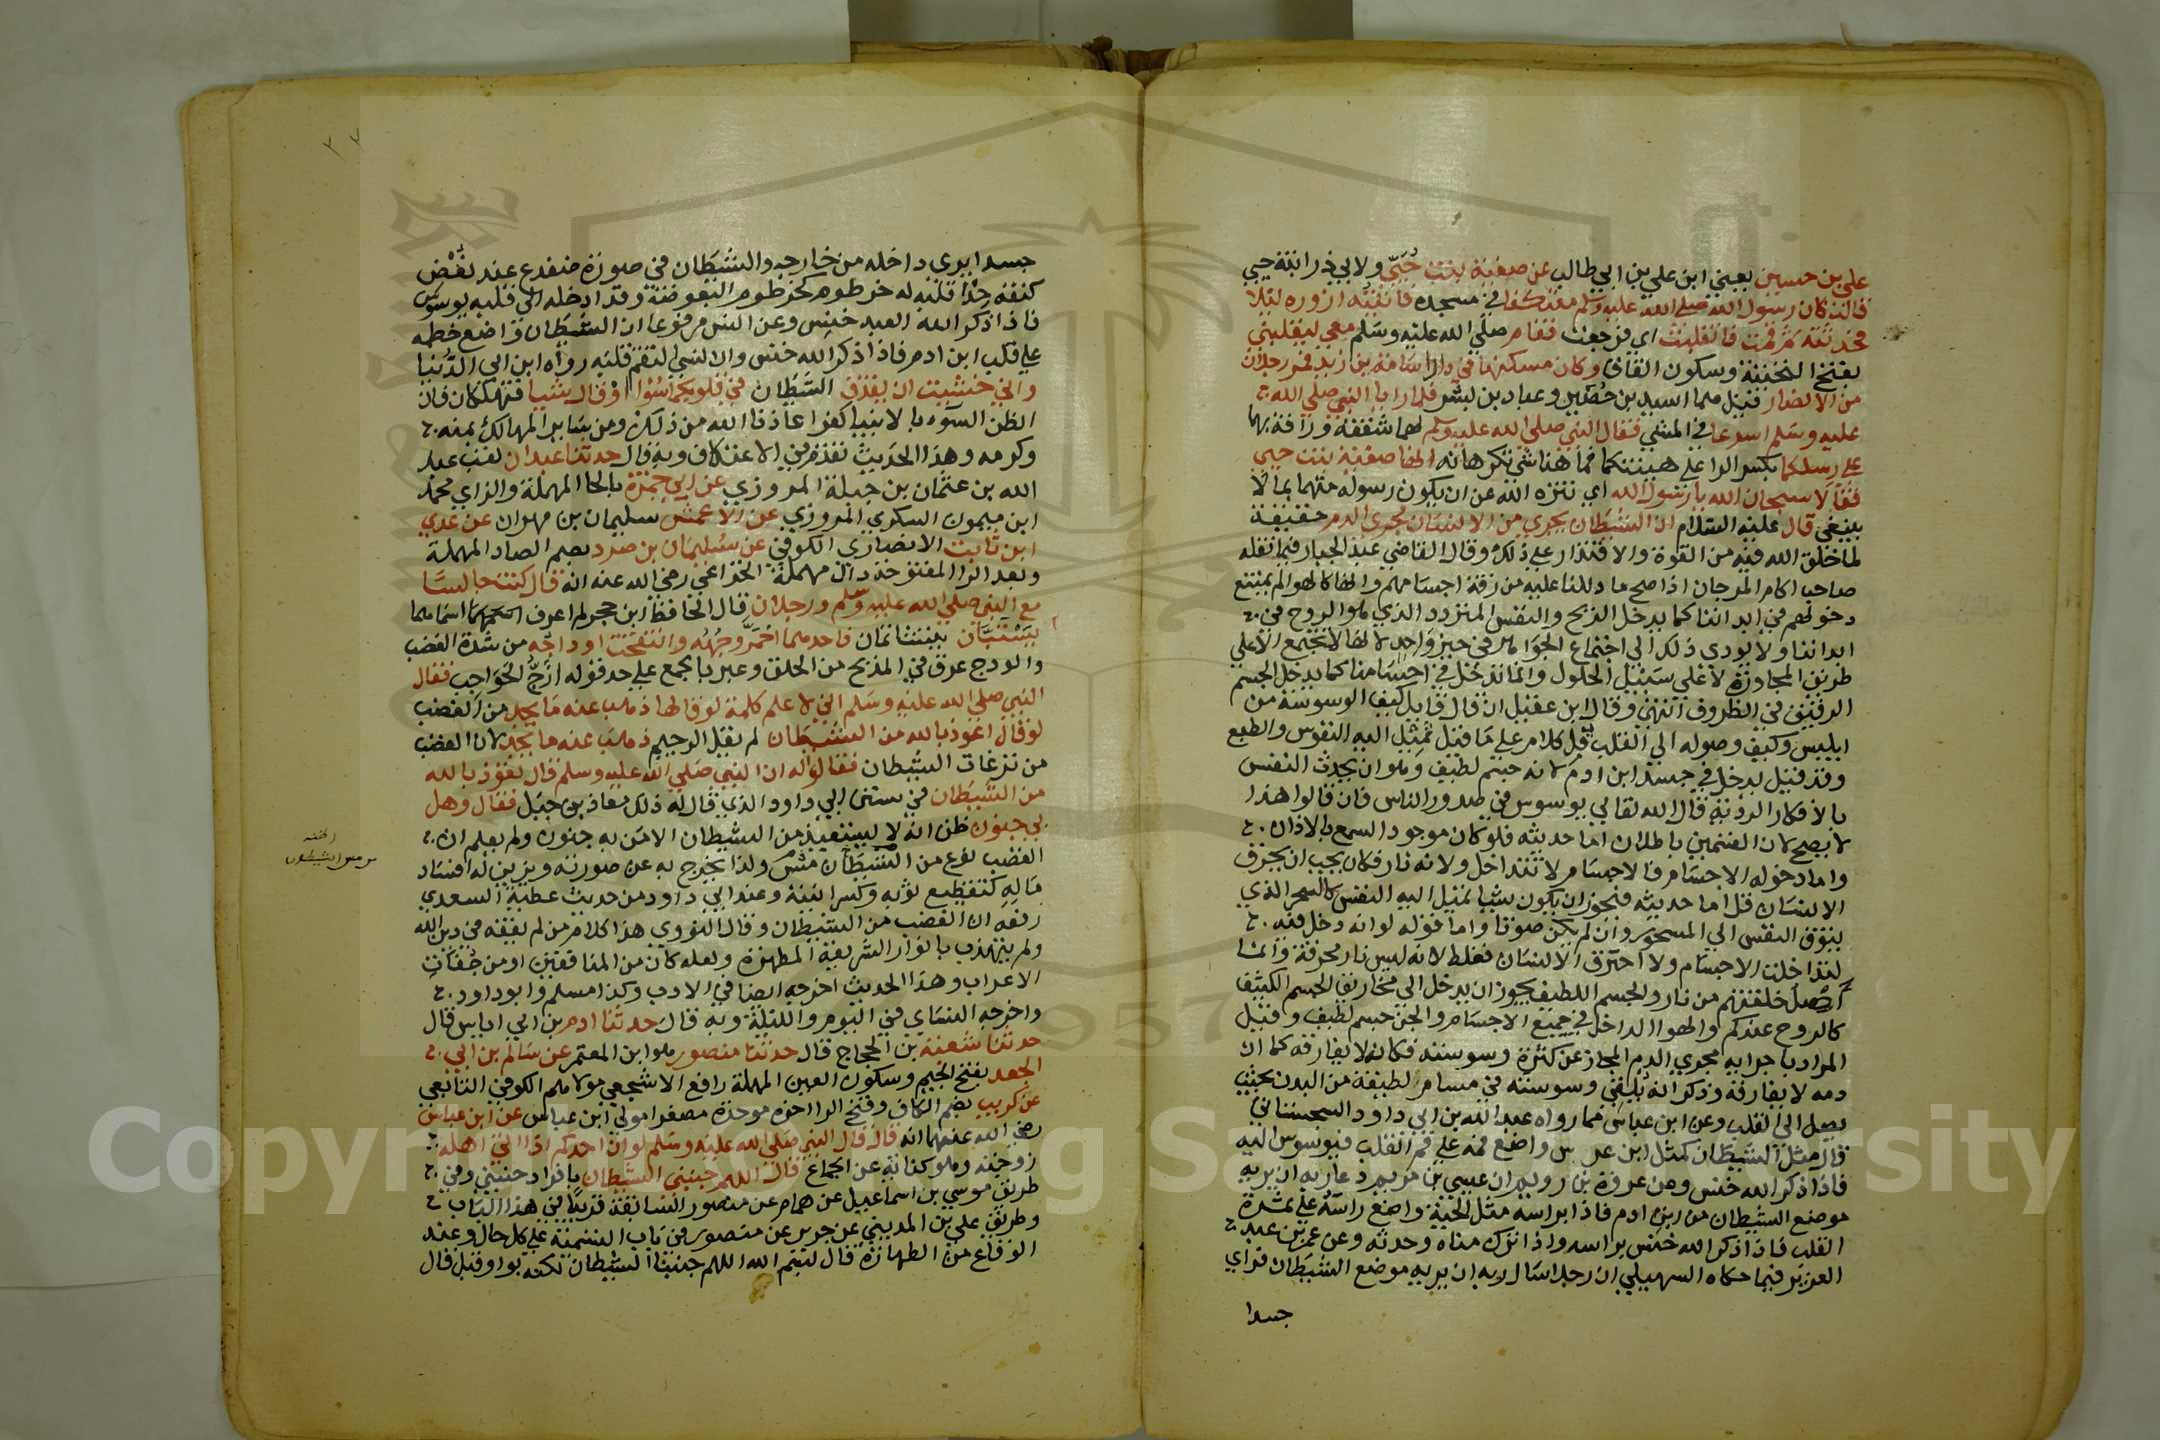 علي بن حسين يعني ابن علي بن ابي طالب عن صفية بنت حُيَيّ ولابي ذر ابنة حيي
قالت كان رسول الله صلى الله عليه وسلم معتكفا في مسجده فاتيته ازوره ليلا
فحدثته ثم قمت فانقلبت اي فرجعت فقام صلي الله عليه وسلم معي ليقلبني
بفتح التحتية وسكون القاف وكان مسكنها في دار اسامة بن زيد فمر رجلان
من الانصار قيل هما اسيد بن حضير وعباد بن بشر فلما رايا النبي صلي الله
عليه وسلم اسرعا في المشي فقال النبي صلى الله عليه وسلم لهما شفقة ورافة بهما
على رسلكما بكسر الرا علي هينتكما فما هنا شي تكرهانه انها صفية بنت حيي
فقالا سبحان الله يا رسول الله اي تنزه الله عن ان يكون رسوله متهما بما لا
ينبغي قال عليه السلام ان الشيطان يجري من الانسان مجري الدم حقيقة
لما خلق الله فيه من القوة والاقتدار علي ذلك وقال القاضي عبد الجبار فيما نقله
صاحب اكام المرجان اذا صح ما دللنا عليه من رقة اجسامهم وانها كالهوا لم يمتنع
دخولهم في ابداننا كما يدخل الريح والنفس المتردد الذي هو الروح في
ابداننا ولا يودي ذلك الي اجتماع الجواهر في حيز واحد لانها لا تجتمع الا علي
طريق المجاورة لا علي سبيل الحلول وانما تدخل في اجسامنا كما يدخل الجسم
الرقيق في الظروف انتهي وقال ابن عقيل ان قال قايل كيف الوسوسة من
ابليس وكيف وصوله الي القلب قل كلام علي ما قيل تميل اليه النفوس والطبع
وقد قيل يدخل في جسد ابن ادم لانه جسم لطيف وهو ان يحدث النفس
بالافكار الردية قال الله تعالي يوسوس في صدور الناس فان قالوا هذا
لا يصح لان القسمين باطلان اما حديثه فلو كان موجود السمع بالاذان
واما دخوله الاجسام فالاجسام لا تتداخل ولانه نار فكان يجب ان يحرق
الانسان قل اما حديثه فيجوز ان يكون شيا تميل اليه النفس كالسحر الذي
يتوق النفس الي المسحور وان لم يكن صوتا واما قوله لو انه دخل فيه
لتداخلت الاجسام ولا احترق الانسان فغلط لانه ليس نار محرقة وانما
اصل خلقتهم من نار والجسم اللطيف يجوز ان يدخل الي مخاريق الجسم الكثيف
كالروح عندكم والهوا الداخل في جميع الاجسام والجن جسم لطيف وقيل
المراد باجرايه مجري الدم المجاز عن كثرة وسوسته فكانه لا يفارقه كما ان
دمه لا يفارقه وذكر انه يلقي وسوسته في مسام لطيفة من البدن بحيث
يصل الي القلب وعن ابن عباس فيما رواه عبد الله بن ابي داود السجستاني
قال مثل الشيطان كمثل ابن عرس واضع فمه علي فم القلب فيوسوس اليه
فاذا ذكر الله خنس وعن عروة بن رويم ان عيسي بن مريم دعا ربه ان يريه
موضع الشيطان من ابن ادم فاذا براسه مثل الحية واضع راسه علي ثمرة
القلب فاذا ذكر الله خنس براسه واذا ترك مناه وحدثه وعن عمر بن عبد
العزيز فيما حكاه السهيلي ان رجلا سال ربه ان يريه موضع الشيطان فراي
جسدا
جسدا يري داخله من خارجه والشيطان في صورة ضفدع عند نُغْض
كتفه حذا قلبه له خرطوم كخرطوم البعوضة وقد ادخله الي قلبه يوسوس
فاذا ذكر الله العبد خنس وعن انس مرفوعا ان الشيطان واضع خطمه
علي قلب ابن ادم فاذا ذكر الله خنس وان نسي التقم قلبه رواه ابن ابي الدنيا
واني خشيت ان يقذف الشيطان في قلوبكما سوا او قال شيا فتهلكان فان
الظن السوء بالانبيا كفر اعاذنا الله من ذلك ومن ساير المهالك بمنه
وكرمه وهذا الحديث تقدم في الاعتكاف وبه قال حدثنا عبدان لقب عبد
الله بن عثمان بن جبلة المروزي عن ابي حمزة بالحا المهملة والزاي محمد
ابن ميمون السكري المروزي عن الاعمش سليمان بن مهران عن عدي
ابن ثابت الانصاري الكوفي عن سليمان بن صرد بضم الصاد المهملة
وبعد الرا المفتوحة دال مهملة الخزاعي رضي الله عنه انه قال كنت جالسا
مع النبي صلي الله عليه وسلم ورجلان قال الحافظ ابن حجر لم اعرف اسماهما
يستبان يتشاتمان فاحدهما احمر وجهه وانتفخت اوداجه من شدة الغضب
والودج عرق في المذبح من الحلق وعبر بالجمع علي حد قوله ازج الحواجب فقال
النبي صلي الله عليه وسلم اني لاعلم كلمة لو قالها ذهب عنه ما يجد من الغضب
لو قال اعوذ بالله من الشيطان لم يقل الرجيم ذهب عنه ما يجد لان الغضب
من نزغات الشيطان فقالوا له ان النبي صلي الله عليه وسلم قال تعوذ بالله
من الشيطان في سنن ابي داود الذي قال له ذلك معاذ بن جبل فقال وهل
بي جنون ظن انه لا يستعيذ من الشيطان الا من به جنون ولم يعلم ان
الغضب نوع من الشيطان مس ولذا يخرج به عن صورته ويزين له افساد
ماله كتقطيع ثوبه وكسر انيته وعند ابي داود من حديث عطية السعدي
رفعه ان الغضب من الشيطان وقال النووي هذا كلام من لم يفقه في دين الله
ولم يتهذب بانوار الشريعة المطهرة ولعله كان من المنافقين او من جفاة
الاعراب وهذا الحديث اخرجه ايضا في الادب وكذا مسلم وابو داود
واخرجه النساي في اليوم والليلة وبه قال حدثنا ادم بن ابي اياس قال
حدثنا شعبة بن الحجاج قال حدثنا منصور هو ابن المعتمر عن سالم بن ابي
الجعد بفتح الجيم وسكون العين المهملة رافع الاشجعي مولاهم الكوفي التابعي
عن كريب بضم الكاف وفتح الرا اخره موحدة مصغرا مولي ابن عباس عن ابن عباس
رضي الله عنهما انه قال قال النبي صلي الله عليه وسلم لو ان احدكم اذا اتي اهله
زوجته وهو كناية عن الجماع قال اللهم جنبني الشيطان بافراد جنبني وفي
طريق موسي بن اسماعيل عن همام عن منصور السابقة قريبا في هذا الباب
وطريق علي بن المديني عن جرير عن منصور في باب التسمية علي كل حال وعند
الوقاع من الطهارة قال بسم الله اللهم جنبنا الشيطان لكنه بواو قبل قال
من مس الشيطان